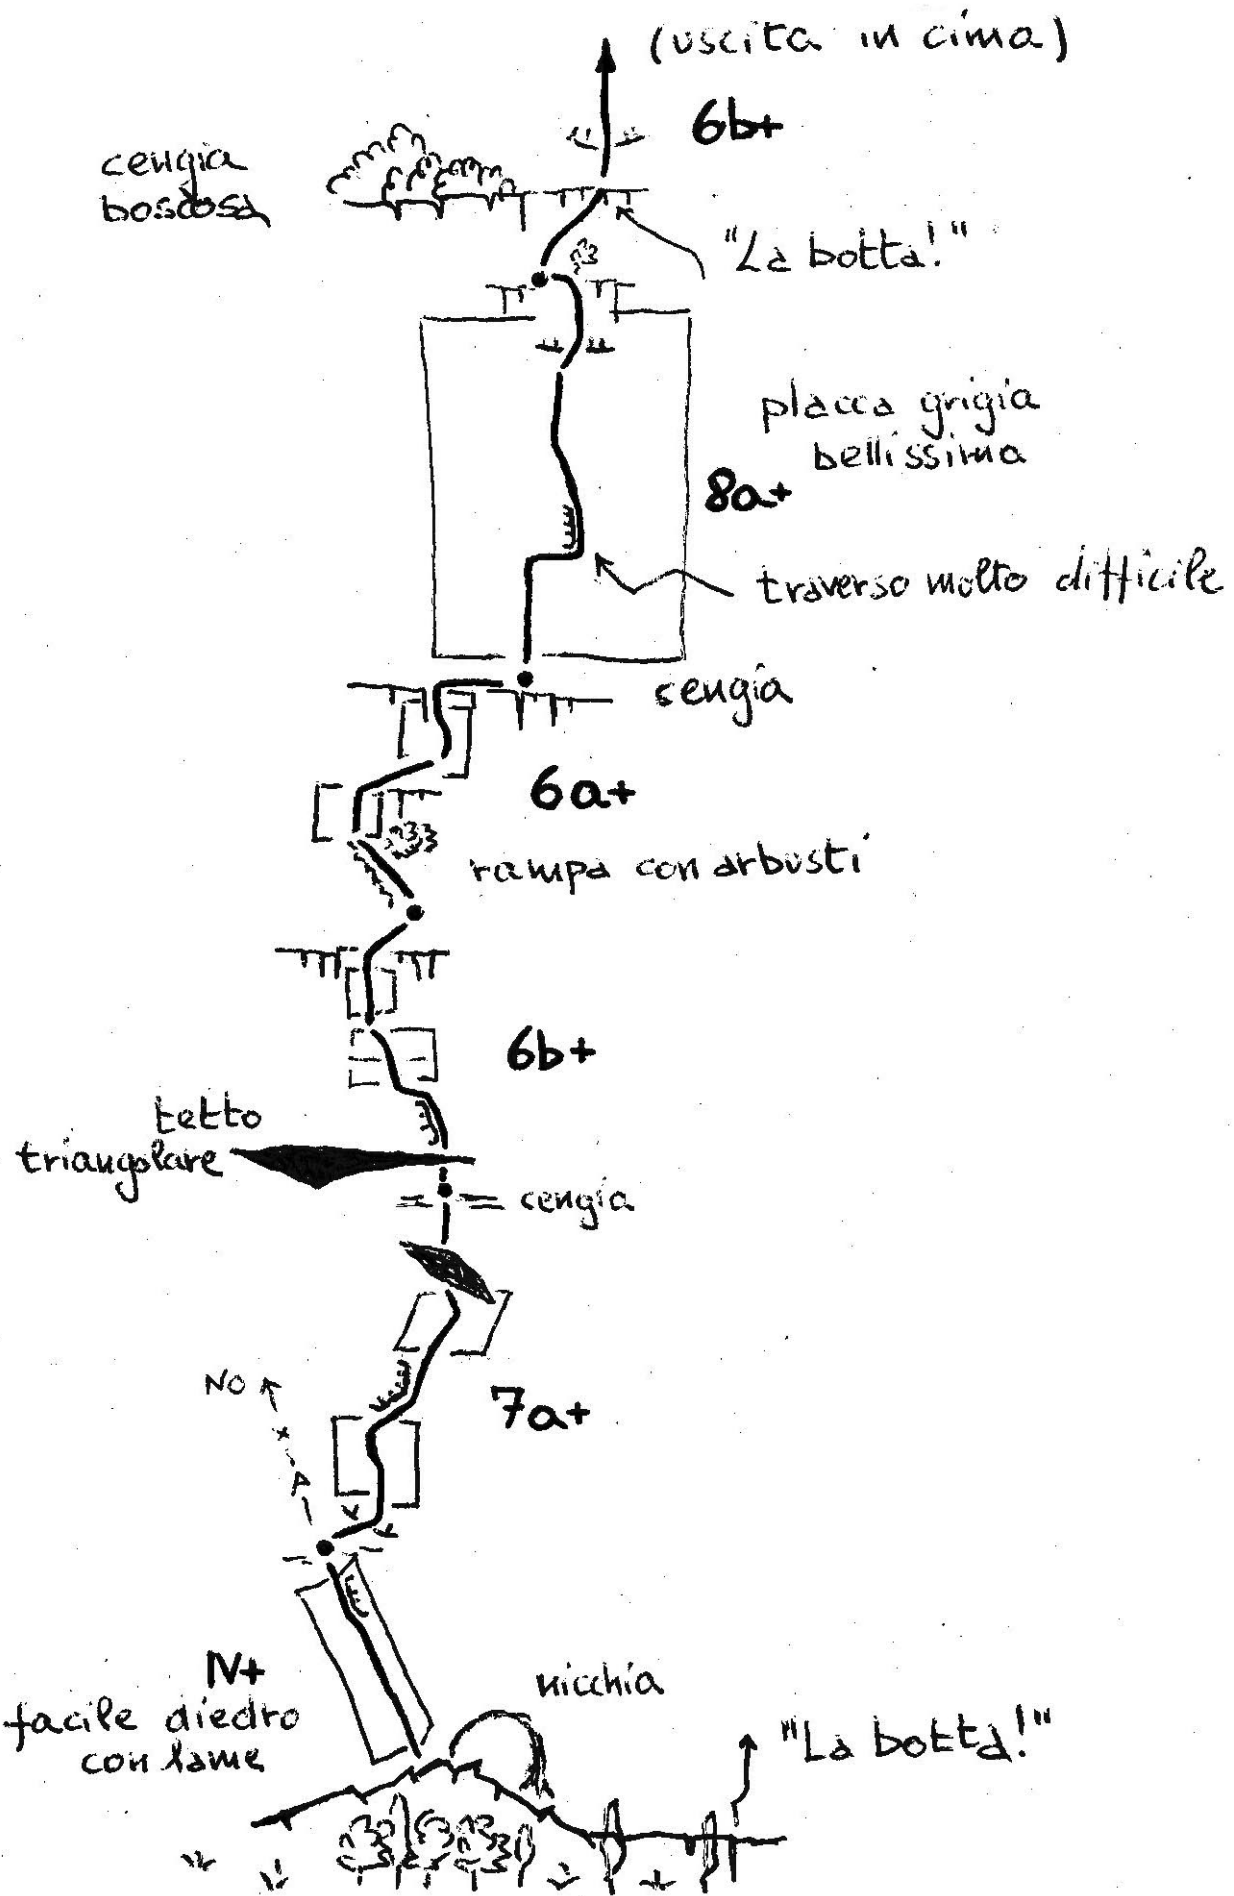 (uscita in cima)
6b+
cengia
boscosa
"La botta!"
placca grigia
bellissima
8a+
traverso molto difficile
cengia
6a+
rampa con arbusti
6b+
tetto
triangolare
cengia
NO
7a+
IV+
facile diedro
con lame
nicchia
"La botta!"